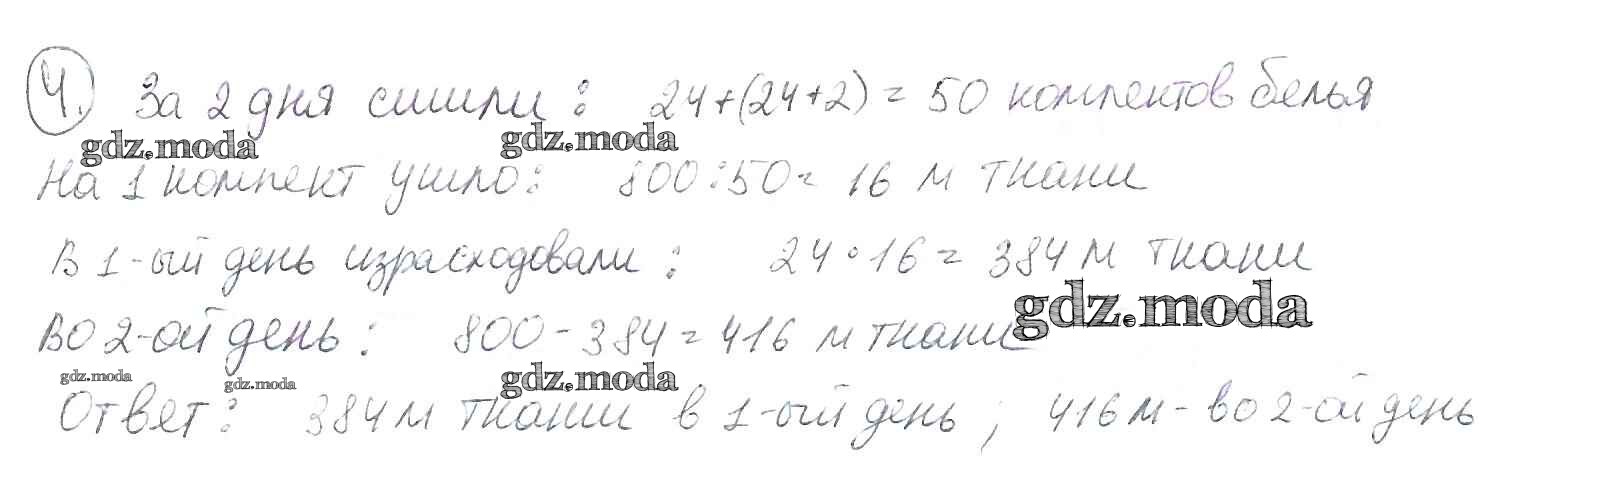 4. За 2 дня сшили: 24+(24+2)=50 комплектов белья
gdz.moda gdz.moda
На 1 комплект ушло: 800:50=16 м ткани
В 1-ый день израсходовали: 24·16=384 м ткани
gdz.moda
Во 2-ой день: 800-384=416 м ткани
gdz.moda gdz.moda gdz.moda
Ответ: 384 м ткани в 1-ый день; 416 м - во 2-ой день